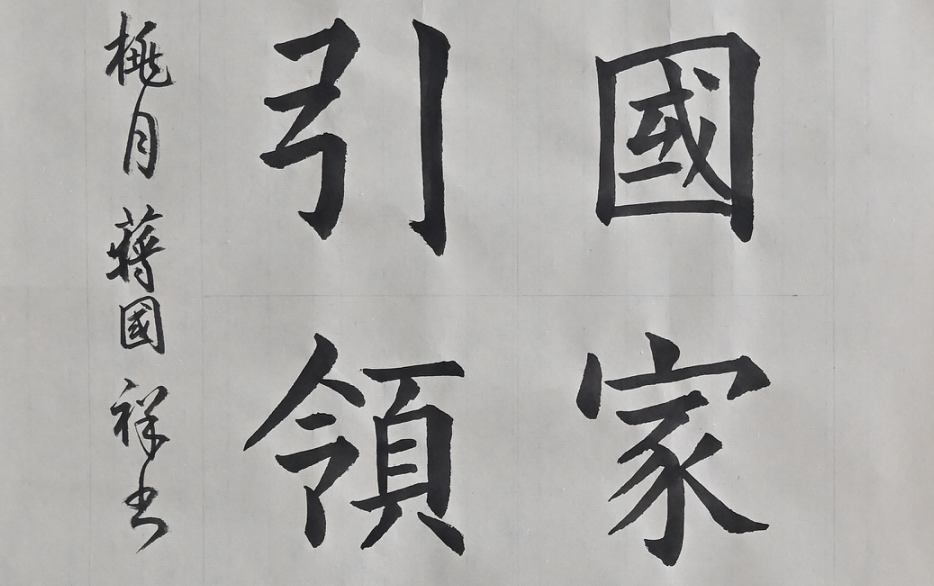 國家
引領
桃月蔣國祥书